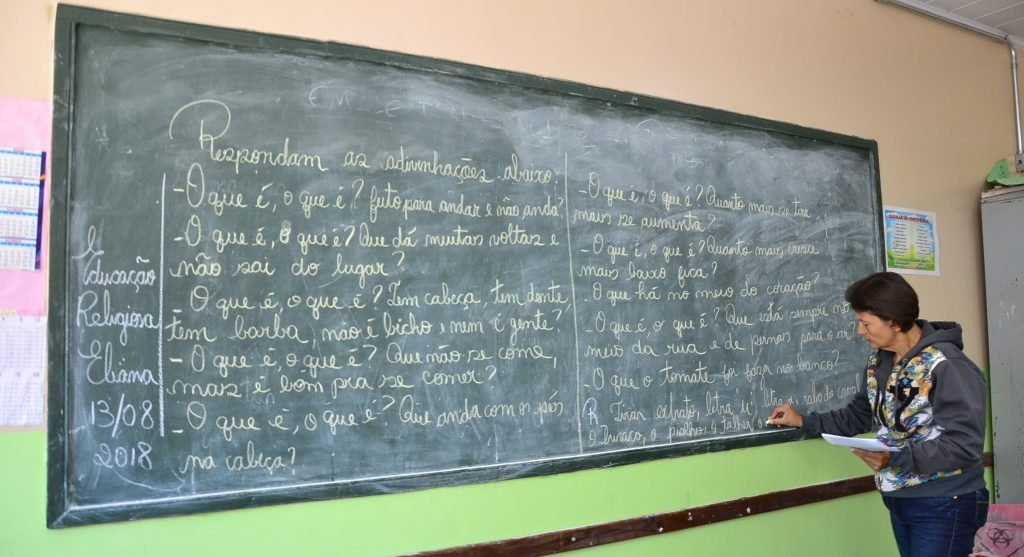 Respondam as adivinhações abaixo:
Educação
Religiosa
Eliana
13/08
2018
- O que é, o que é? futo para andar e não anda?
- O que é, o que é? Que dá muitas voltas e
não sai do lugar?
O que é, o que é? Tem cabeça, tem dente,
tem barba, não é bicho e nem é gente?
- O que é, o que é? Que não se come,
mais é bom pra se comer?
- O que é, o que é? Que anda com os pés
na cabeça?
- O que é, o que é? Quanto mais se tira
mais se aumenta?
- O que é, o que é? Quanto mais cresce
mais baixo fica?
- O que há no meio do coração?
- O que é, o que é? Que está sempre no
meio da rua e de pernas para o ar?
- O que o tomate foi fazer no banco?
R Tirar extrato, letra u, letra a, rabo do
o buraco, o piolho, o talher